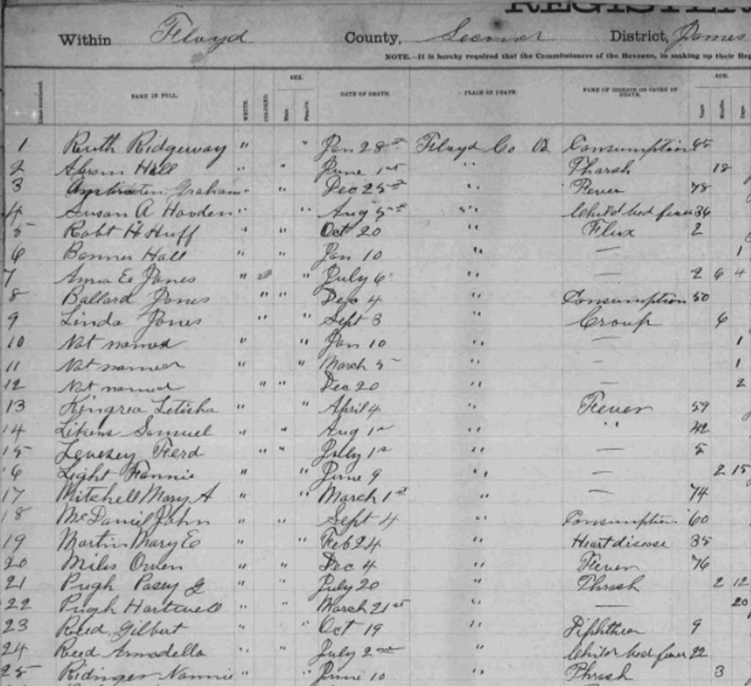 REGISTER
Within Floyd County, Second District, James
NOTE.—It is hereby required that the Commissioners of the Revenue, in making up their Rep
SEX. AGE.
NAME IN FULL. WHITE. COLORED. Male. Female. DATE OF DEATH. PLACE OF DEATH. NAME OF DISEASE OR CAUSE OF DEATH. Years Months Days
1 Ruth Ridgeway " " Jan 28th Floyd Co Va Consumption 65
2 Abram Hall " " June 1st " Tharsh 18
3 Graham " " Dec 25th " Fever 78
4 Susan A Howden " " Aug 5th " Child bed fever 36
5 Robt H Huff " " Oct 20 " Flux 2
6 Banner Hall " " Jan 10 " — 1
7 Anna E Jones " " July 6 " — 2 6 4
8 Ballard Jones " " Dec 4 " Consumption 50
9 Linda Jones " " Sept 3 " Croup 6
10 Not named " " Jan 10 " — 1
11 Not named " " March 5 " — 1
12 Not named " " Dec 20 " — 2
13 Kingrea Letisha " " April 4 " Fever 59
14 Likens Samuel " " Aug 1st " " 42
15 Levesey Ferd " " July 1st " — 5
16 Light Fannie " " June 9 " — 2 15
17 Mitchell Mary A " " March 1st " — 74
18 McDaniel John " " Sept 4 " Consumption 60
19 Martin Mary E " " Feb 24 " Heart disease 35
20 Miles Owen " " Dec 4 " Fever 76
21 Pugh Pasey G " " July 20 " Thrash 2 12
22 Pugh Hartwell " " March 21st " — 20
23 Reed Gilbert " " Oct 19 " Diphtheria 9
24 Reed Armadella " " July 2nd " Child bed fever 22
25 Ridinger Nannie " " June 10 " Thrash 3